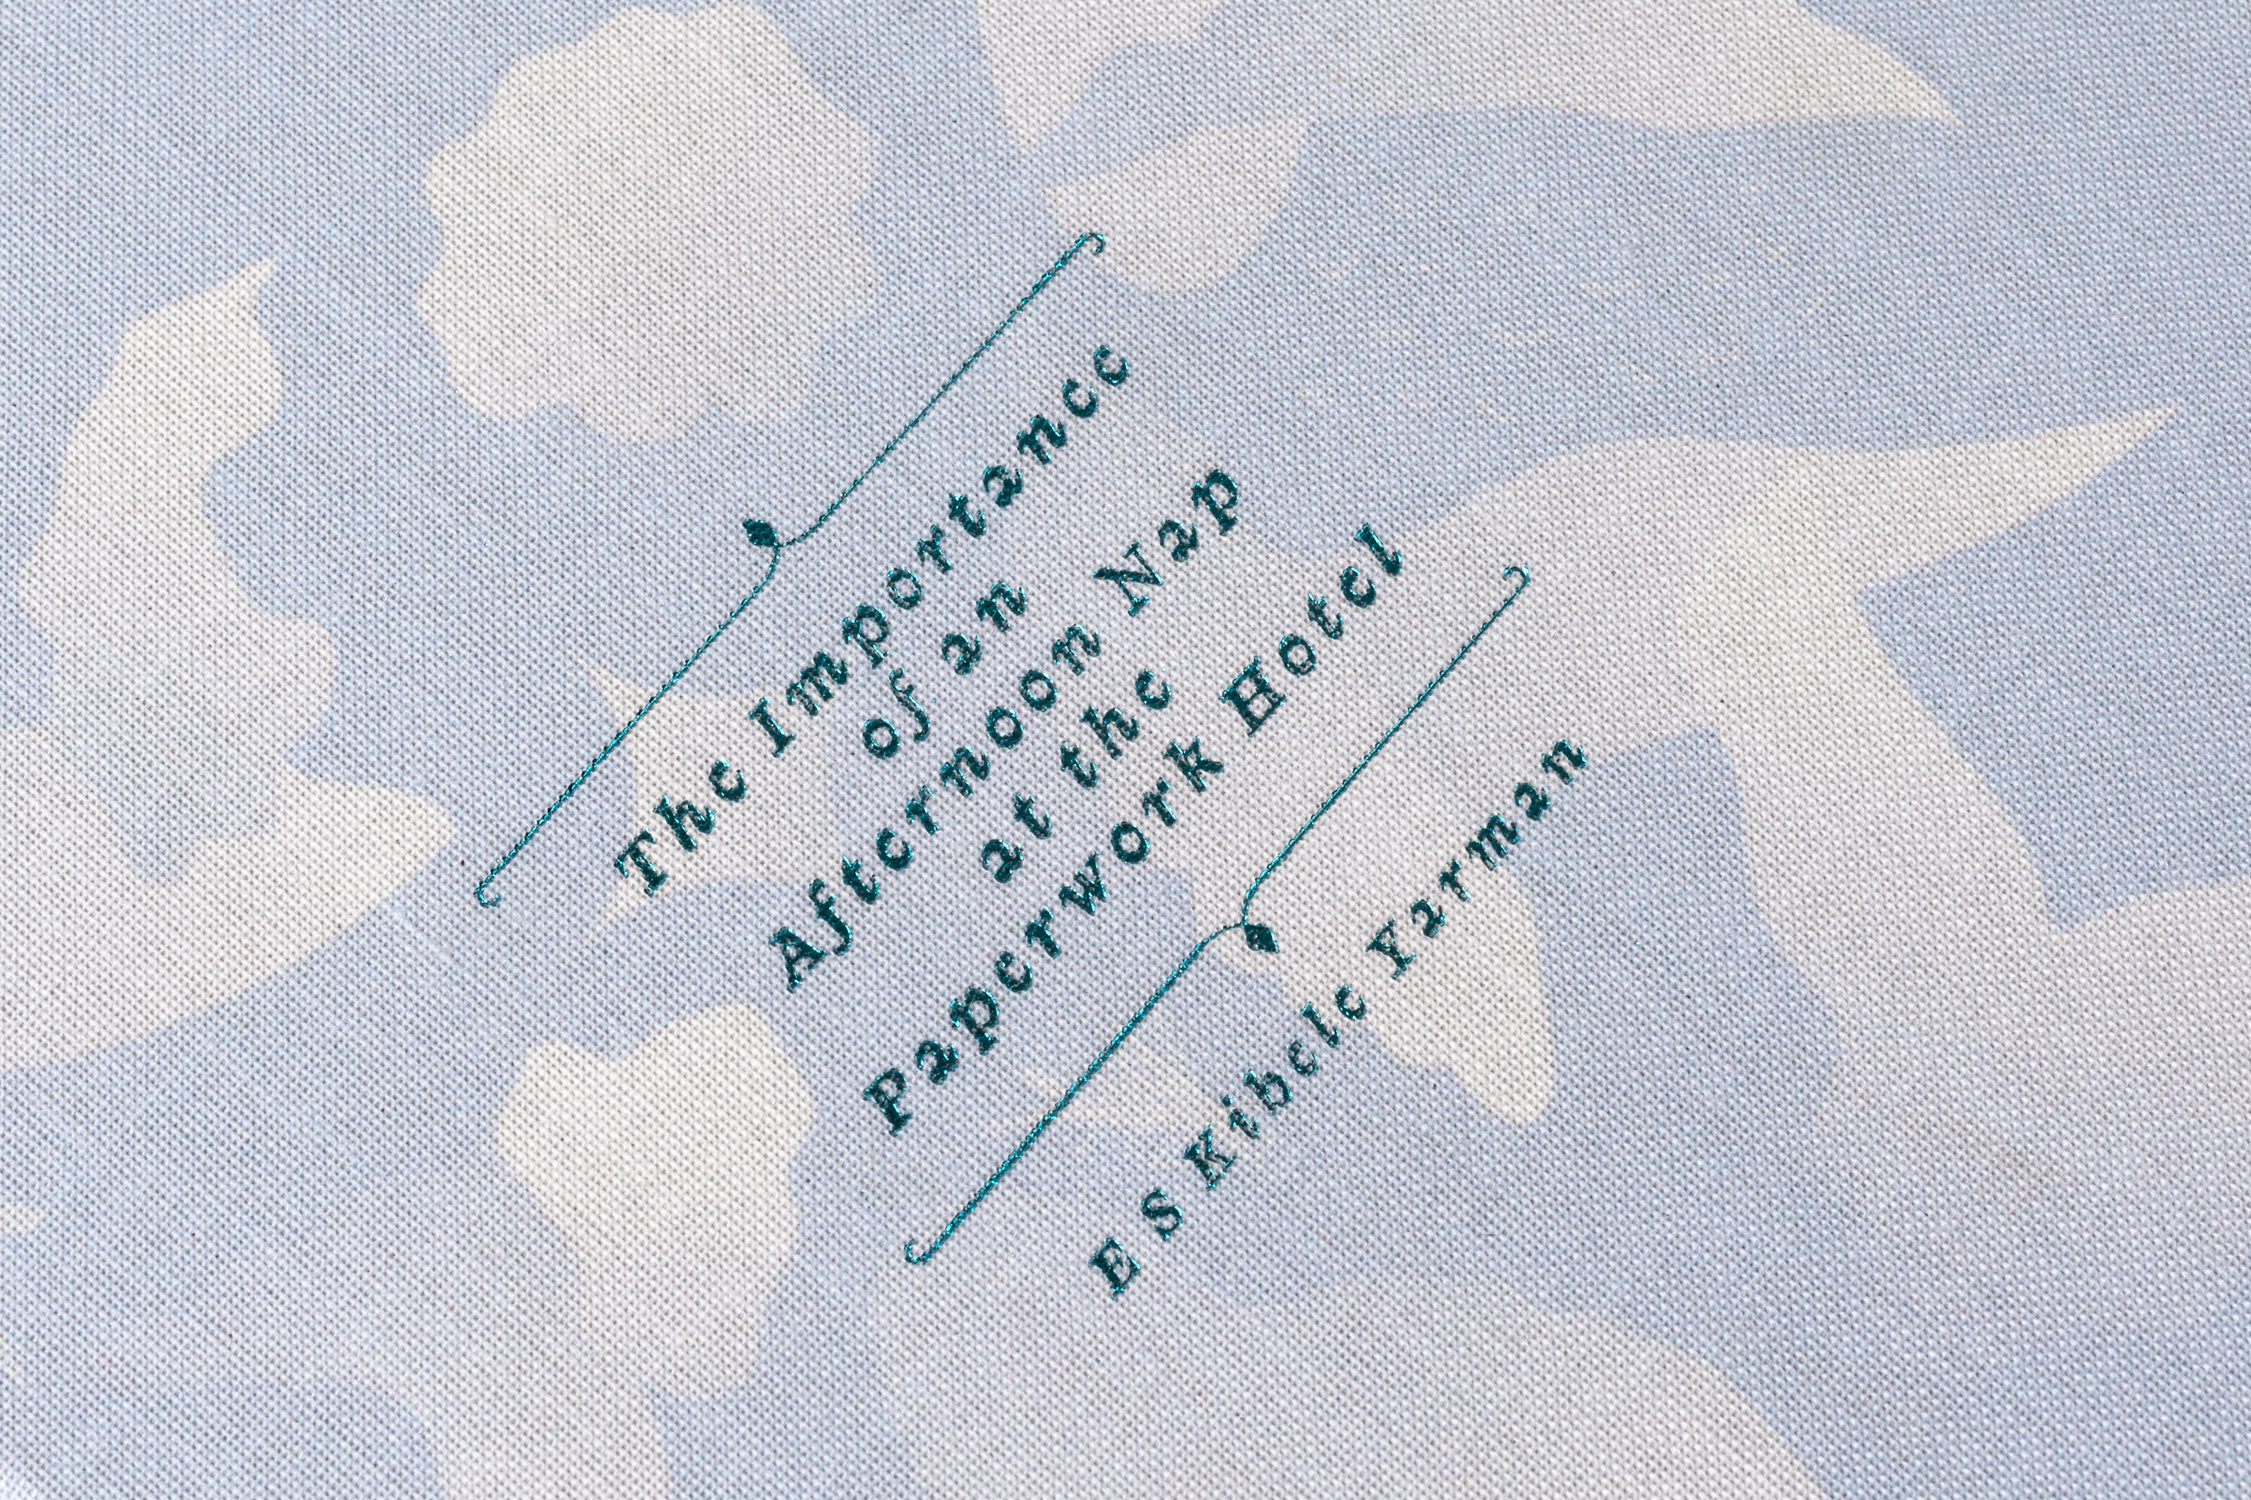 The Importance
of an
Afternoon Nap
at the
Paperwork Hotel
E S Kibele Yarman